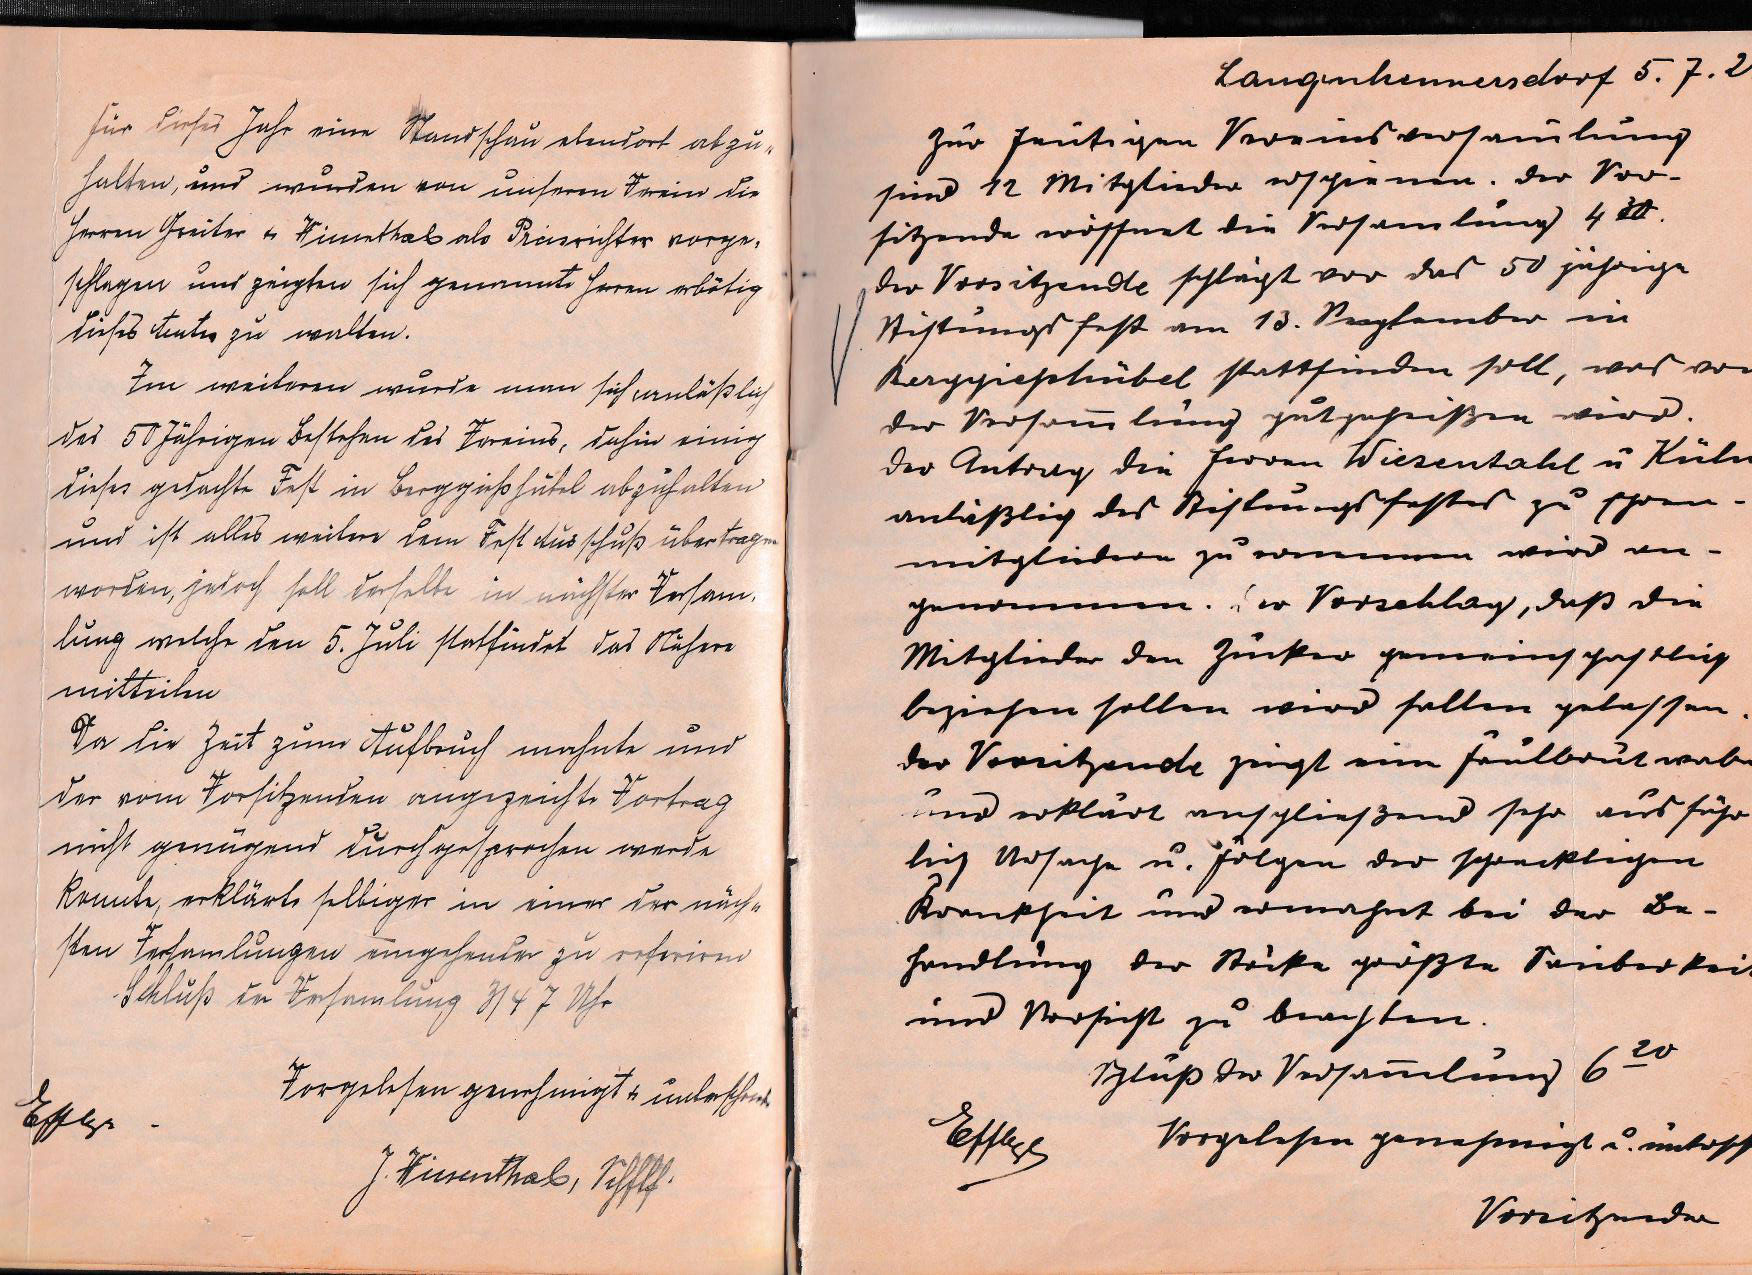 für dieses Jahr eine Standschau ebendort abzu-
halten, und wurden von unseren Verein die
Herren Greiter u Wiesethal als Preisrichter vorge-
schlagen und zeigten sich genannte Herren erbötig
dieses Amtes zu walten.
Im weiteren wurde man sich anläßlich
des 50 Jährigen Bestehen des Vereins, dahin einig
dieses gedachte Fest in Berggießhübel abzuhalten
und ist alles weitere dem Fest Ausschuß übertragen
worden, jedoch soll derselbe in nächster Versam-
lung welche den 5. Juli statfindet das Nähere
mitteilen
Da die Zeit zum Aufbruch mahnte und
der vom Vorsitzenden angezeichte Vortrag
nicht genügend durchgesprochen werde
konnte, erklärte selbiger in einer der näch-
sten Versamlungen eingehender zu referiren
Schluß der Versamlung 3/4 7 Uhr
Vorgelesen genehmigt u unterschrieb
J. Wiesenthal, Schfff.
Langenhennersdorf 5. 7. 2
Zur heutigen Vereinsversamlung
sind 12 Mitglieder erschienen. der Vor-
sitzende eröffnet die Versamlung 4 30.
der Vorsitzende schlägt vor das 50 jährige
Stiftungsfest am 13. September in
Berggieshübel stattfinden soll, was von
der Versam̅lung gutgeheißen wird.
der Antrag die Herren Wiesentahl u Küln
anläßlich des Stiftungsfestes zu Ehren-
mitgliedern zu ernennen wird an-
genommen. der Vorschlag, daß die
Mitglieder den Zucker gemeinschaftlich
beziehen sollen wird fallen gelassen.
der Vorsitzende zeigt eine Faulbrut wabe
und erklärt anschließend sehr ausführ
lich Ursache u. Folgen der schrecklichen
Krankheit und ermahnt bei der Be-
handlung der Stöcke größte Sauberkeit
und Vorsicht zu beachten.
Schluß der Versam̅lung 6 20
Vorgelesen genehmigt u. untersch
Vorsitzender